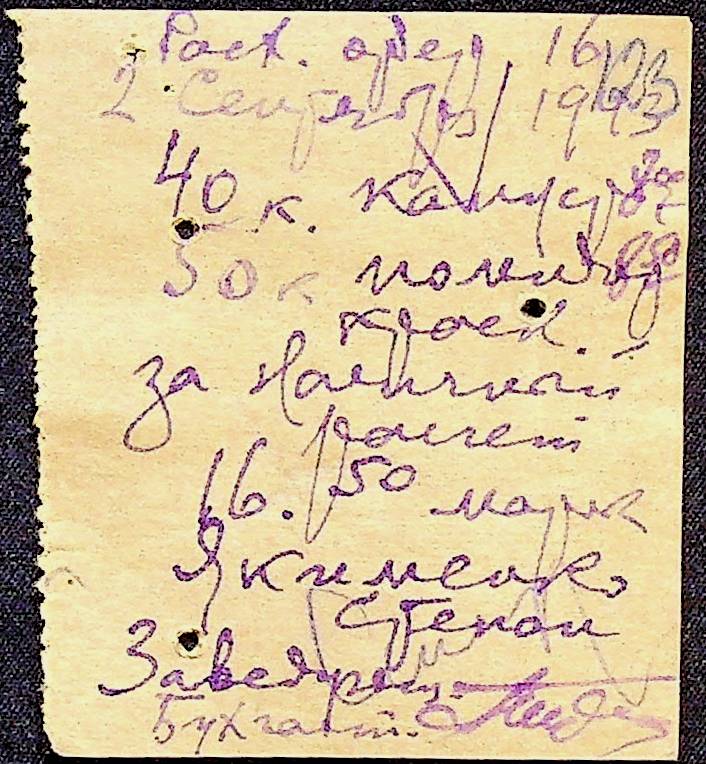 Расх. ордер 16
2 Сентября 1943
40 к. капуст
50 к помидор
красн.
за наличный
расчет
16.50 марк
Якименко
Степан
Заведующ.
Бухгалт.